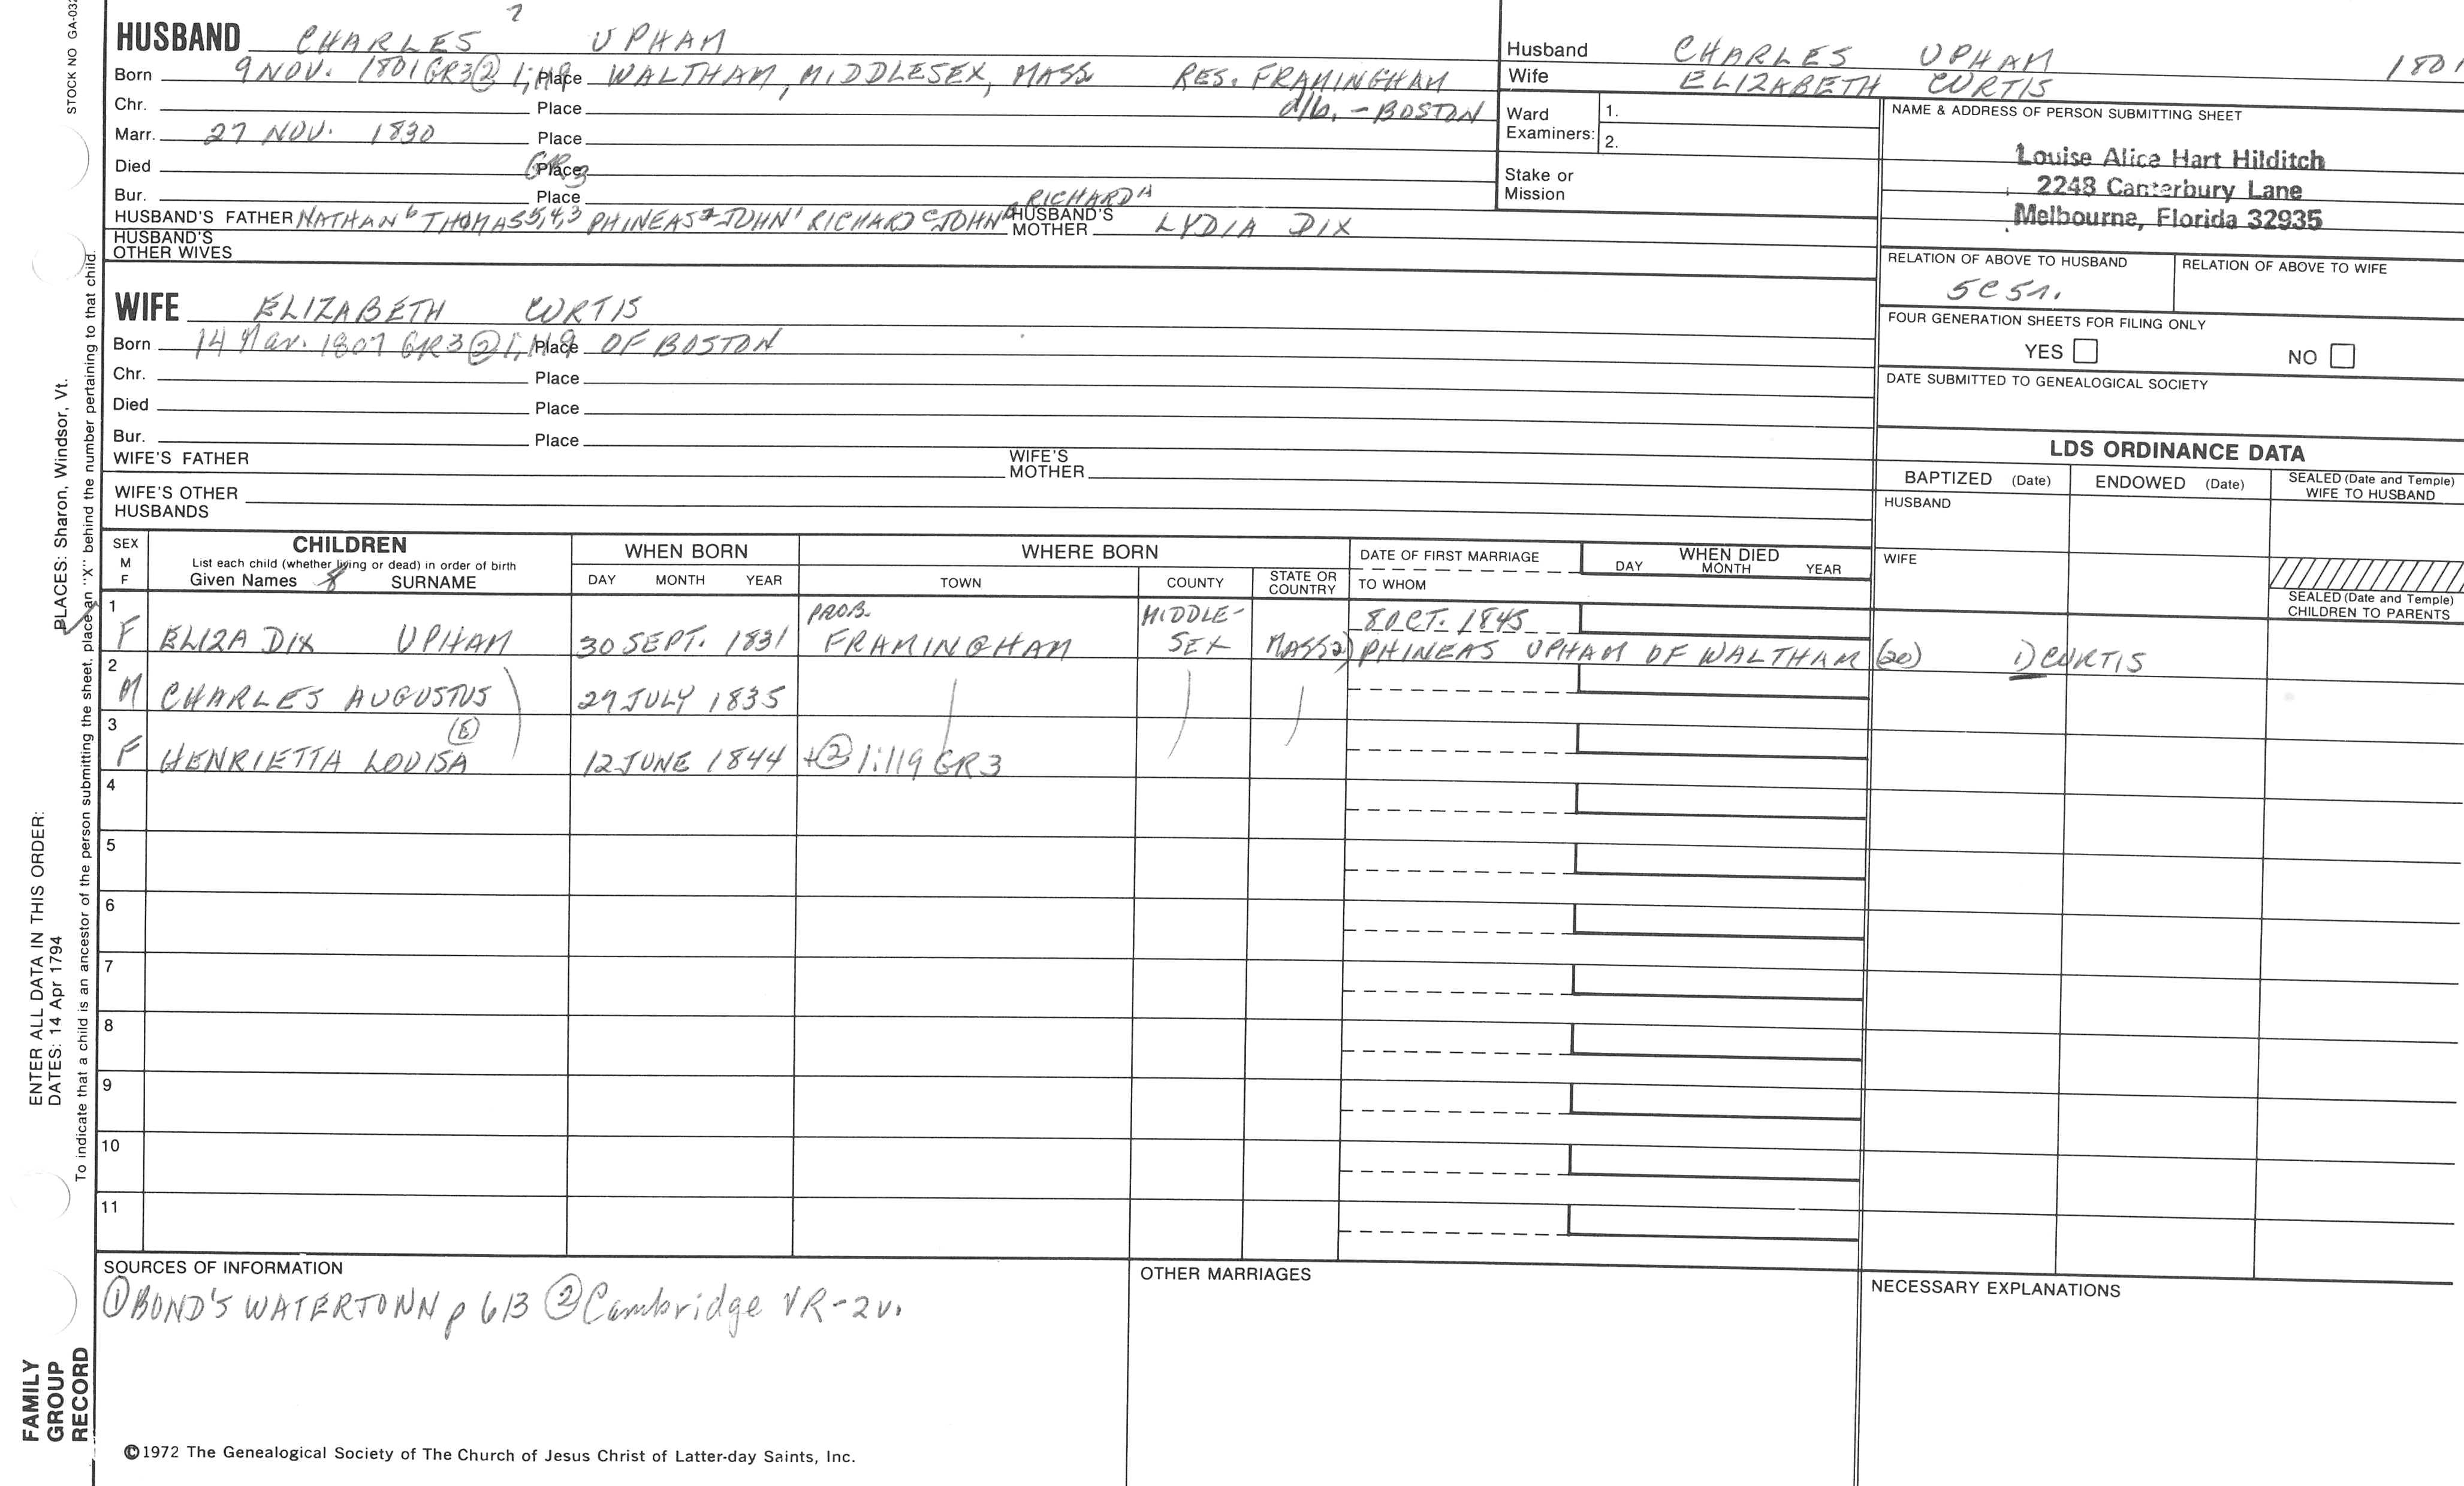 STOCK NO GA-032
7
HUSBAND CHARLES UPHAM
Born 9 NOV. 1801 GR3 ② 1;119 Place WALTHAM, MIDDLESEX, MASS RES. FRAMINGHAM
Chr. Place d/b. - BOSTON
Marr. 27 NOV. 1830 Place
Died Place GR3
Bur. Place
RICHARD A
HUSBAND'S FATHER NATHAN 6 THOMAS 5,4,3 PHINEAS 2 JOHN 1 RICHARD C JOHN B HUSBAND'S MOTHER LYDIA DIX
HUSBAND'S OTHER WIVES
WIFE ELIZABETH CURTIS
Born 14 Mar. 1807 GR3 ② 1;119 Place OF BOSTON
Chr. Place
Died Place
Bur. Place
WIFE'S FATHER WIFE'S MOTHER
WIFE'S OTHER HUSBANDS
Husband CHARLES UPHAM 1801
Wife ELIZABETH CURTIS
Ward Examiners: 1.
2.
Stake or Mission
NAME & ADDRESS OF PERSON SUBMITTING SHEET
Louise Alice Hart Hilditch
2248 Canterbury Lane
Melbourne, Florida 32935
RELATION OF ABOVE TO HUSBAND RELATION OF ABOVE TO WIFE
5C5r.
FOUR GENERATION SHEETS FOR FILING ONLY
YES NO
DATE SUBMITTED TO GENEALOGICAL SOCIETY
LDS ORDINANCE DATA
BAPTIZED (Date) ENDOWED (Date) SEALED (Date and Temple) WIFE TO HUSBAND
HUSBAND
WIFE
SEALED (Date and Temple) CHILDREN TO PARENTS
SEX M F
CHILDREN
List each child (whether living or dead) in order of birth
Given Names 8 SURNAME
WHEN BORN
DAY MONTH YEAR
WHERE BORN
TOWN COUNTY STATE OR COUNTRY
DATE OF FIRST MARRIAGE
TO WHOM
WHEN DIED
DAY MONTH YEAR
1 F ELIZA DIX UPHAM 30 SEPT. 1831 PROB. FRAMINGHAM MIDDLE-SEX MASS 8 OCT. 1845
2) PHINEAS UPHAM OF WALTHAM (20) 1) CURTIS
2 M CHARLES AUGUSTUS 27 JULY 1835
3 F HENRIETTA LOUISA (E) 12 JUNE 1844 + ② 1:119 GR3
4
5
6
7
8
9
10
11
SOURCES OF INFORMATION
① BOND'S WATERTOWN p 613 ② Cambridge VR-2v.
OTHER MARRIAGES
NECESSARY EXPLANATIONS
©1972 The Genealogical Society of The Church of Jesus Christ of Latter-day Saints, Inc.
FAMILY GROUP RECORD
ENTER ALL DATA IN THIS ORDER:
DATES: 14 Apr 1794
PLACES: Sharon, Windsor, Vt.
To indicate that a child is an ancestor of the person submitting the sheet, place an "X" behind the number pertaining to that child.